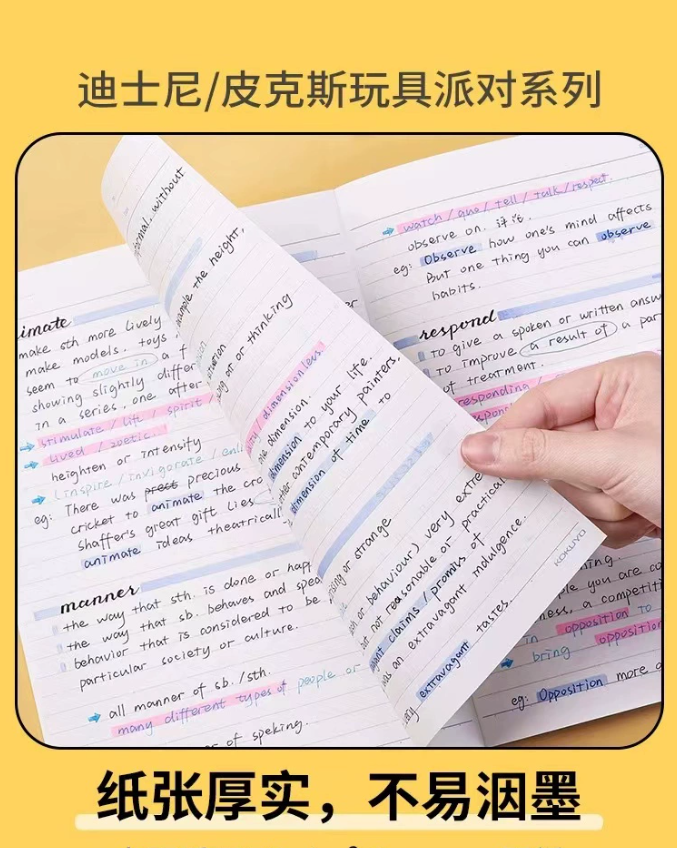 迪士尼/皮克斯玩具派对系列
make sth more lively
make models. toys
seem to move in a f
showing slightly differ
in a series, one after
stimulate / lift / spirit
lived / zoetic.
heighten or intensity
There was prest precious
eg: cricket to animate the cro
Shaffer's great gift lies
animate ideas theatricall
manner
the way that sth. is done or happ
the way that sb. behaves and spea
behavior that is considered to be
particular society or culture.
all manner of sb./sth.
many different types of people or
of speking.
without
example the height,
or thinking
dimensionless.
dimension.
dimension to your life.
contemporary painters,
dimension of time to
or strange
or behaviour) very extre
but not reasonable or practical
claims / promis of
was an extravagant indulgence.
extravagant tastes.
KOKUYO
watch / quo / tell / talk / respect
observe on.
eg: Observe how one's mind affects
But one thing you can observe
habits.
respond
to give a spoken or written answ
to improve a result of a par
of treatment.
responding /
you are co
a competiti
in opposition to
bring opposition
eg: Opposition more
纸张厚实，不易洇墨